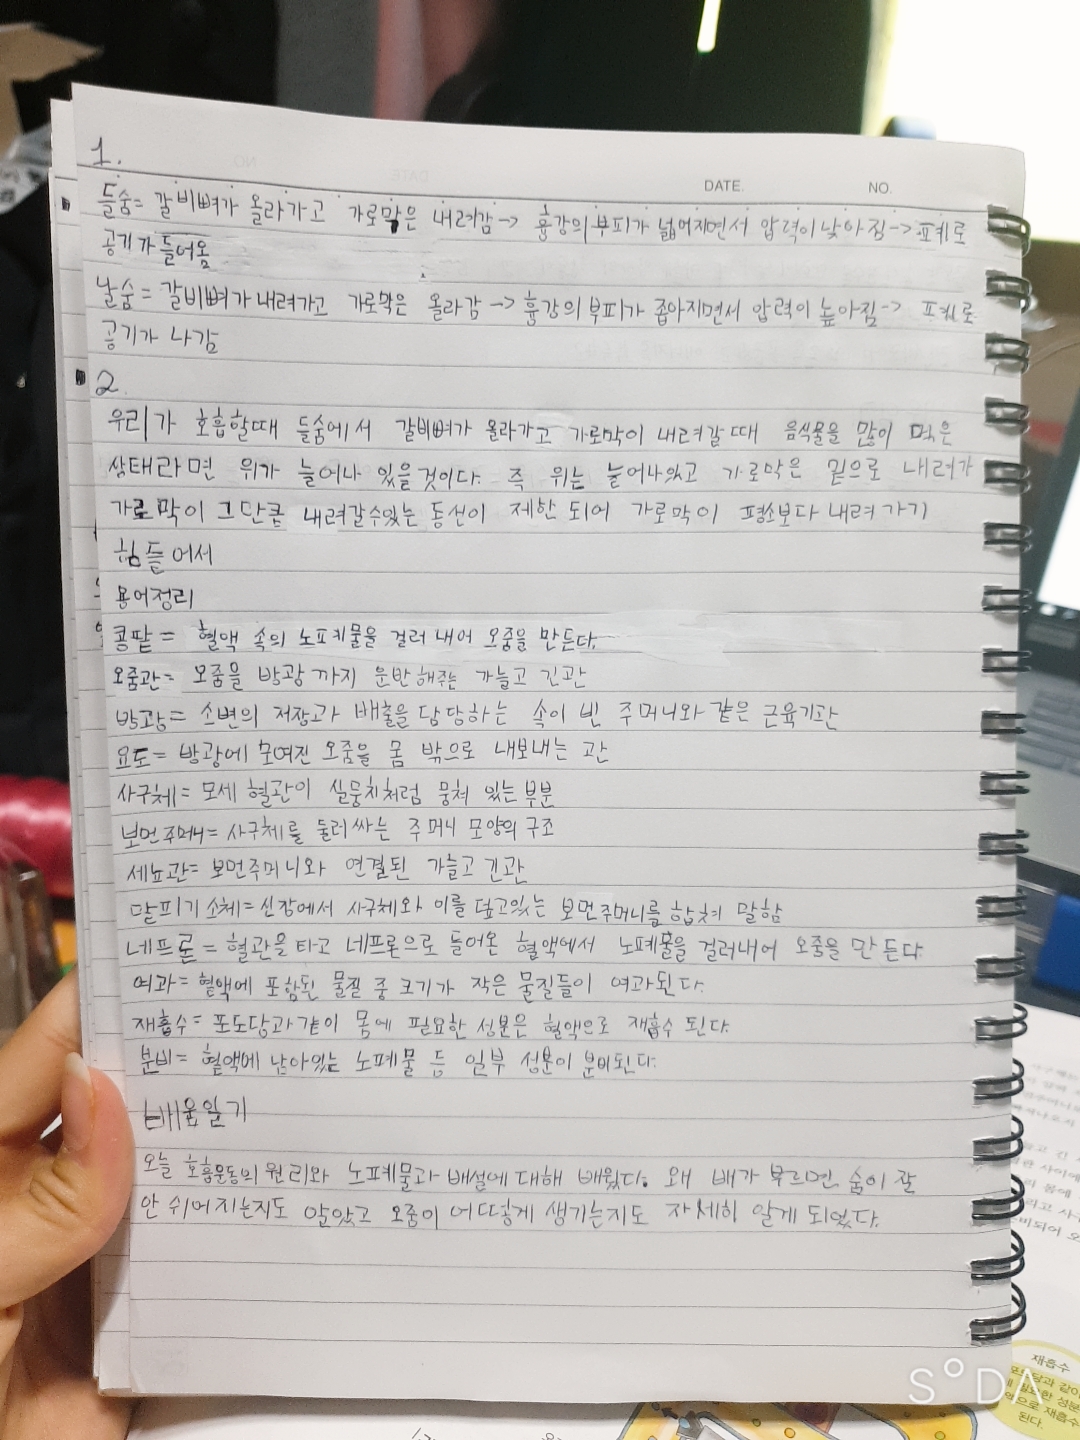 DATE. NO.
1.
들숨= 갈비뼈가 올라가고 가로막은 내려감→ 흉강의 부피가 넓어지면서 압력이 낮아짐→폐로
공기가 들어옴
날숨=갈비뼈가 내려가고 가로막은 올라감→흉강의 부피가 좁아지면서 압력이 높아짐→ 폐로
공기가 나감
2.
우리가 호흡할때 들숨에서 갈비뼈가 올라가고 가로막이 내려갈때 음식물을 많이 먹은
상태라면 위가 늘어나 있을것이다. 즉 위는 늘어나있고 가로막은 밑으로 내려가
가로막이 그만큼 내려갈수있는 동선이 제한 되어 가로막이 평소보다 내려가기
힘들어서
용어정리
콩팥= 혈액 속의 노폐물을 걸러 내어 오줌을 만든다.
오줌관= 오줌을 방광까지 운반해주는 가늘고 긴관
방광= 소변의 저장과 배출을 담당하는 속이 빈 주머니와 같은 근육기관
요도= 방광에 모여진 오줌을 몸 밖으로 내보내는 관
사구체= 모세 혈관이 실뭉치처럼 뭉쳐 있는 부분
보먼주머니=사구체를 둘러싸는 주머니 모양의 구조
세뇨관=보먼주머니와 연결된 가늘고 긴관
말피기소체=신장에서 사구체와 이를 덮고있는 보먼주머니를 합쳐 말함
네프론= 혈관을 타고 네프론으로 들어온 혈액에서 노폐물을 걸러내어 오줌을 만든다.
여과=혈액에 포함된 물질 중 크기가 작은 물질들이 여과된다.
재흡수= 포도당과 같이 몸에 필요한 성분은 혈액으로 재흡수 된다.
분비= 혈액에 남아있는 노폐물 등 일부 성분이 분비된다.
배움일기
오늘 호흡운동의 원리와 노폐물과 배설에 대해 배웠다. 왜 배가 부르면 숨이 잘
안 쉬어지는지도 알았고 오줌이 어떻게 생기는지도 자세히 알게 되었다.
재흡수
포도당과 같이
필요한 성분
으로 재흡수
된다.
SODA